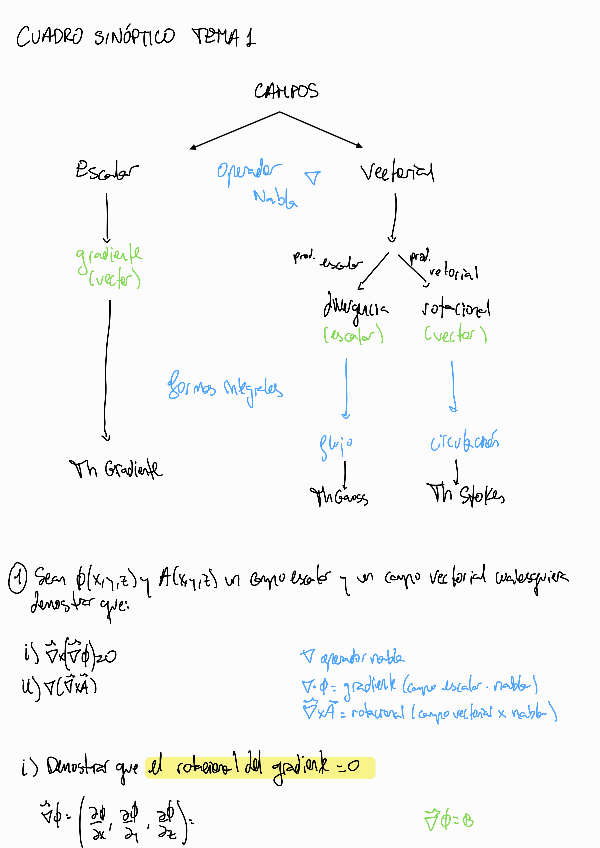 CUADRO SINÓPTICO TEMA 1
CAMPOS
Escalar
Operador
Nabla
∇
Vectorial
gradiente
(vector)
prod. escalar
prod. vetorial
divergencia
(escalar)
rotacional
(vector)
formas integrales
flujo
circulación
Th Gradiente
Th Gauss
Th Stokes
① Sean ϕ(x,y,z) y A(x,y,z) un campo escalar y un campo vectorial cualesquiera
demostrar que:
i) ∇⃗x(∇⃗ϕ)=0
ii) ∇(∇⃗xA⃗)
∇ operador nabla
∇·ϕ = gradiente (campo escalar · nabla)
∇⃗xA⃗ = rotacional (campo vectorial x nabla)
i) Demostrar que el rotacional del gradiente = 0
∇⃗ϕ = (∂ϕ/∂x, ∂ϕ/∂y, ∂ϕ/∂z) =
∇⃗ϕ = B